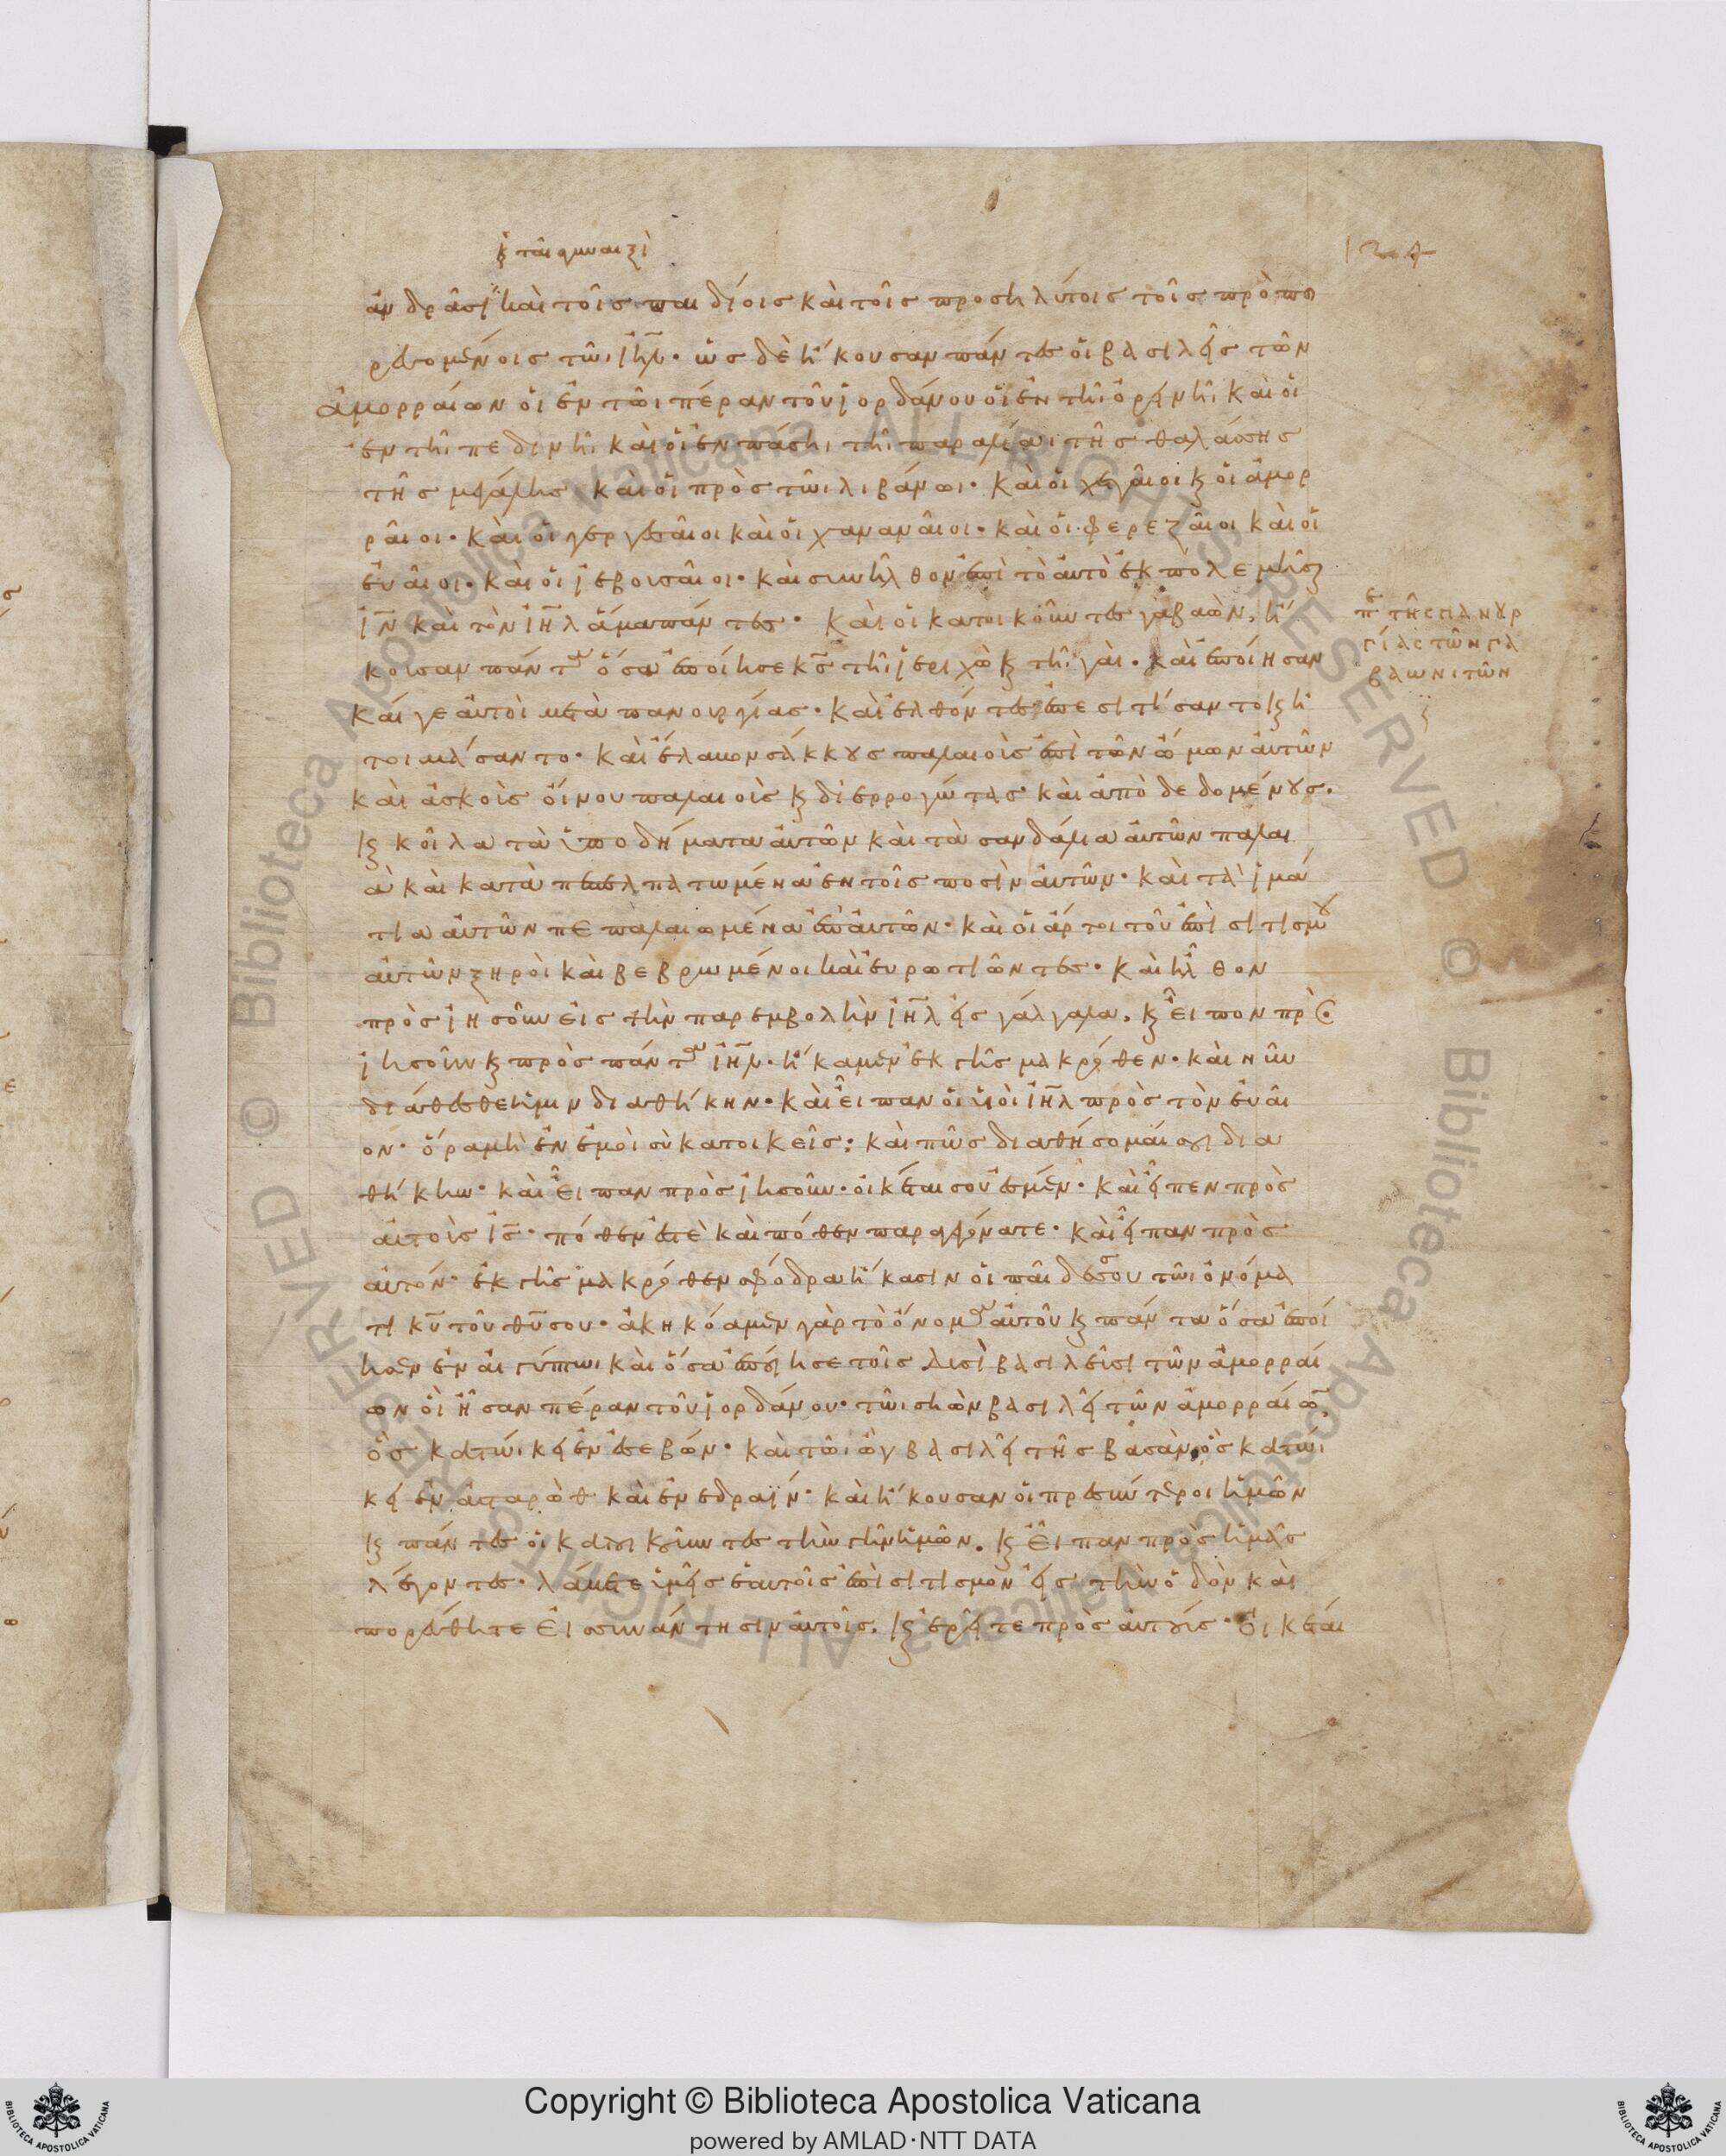 κ ταῖς γυναιξὶ
124
ἀνδράσι καὶ τοῖς παιδίοις καὶ τοῖς προσηλύτοις τοῖς προσπο
ρευομένοις τῶι ιηλ· ὡς δὲ ἤκουσαν πάντες οἱ βασιλεῖς τῶν
ἀμορραίων οἱ ἐν τῶι πέραν τοῦ ἰορδάνου οἱ ἐν τῆι ὀρεινῆι καὶ οἱ
ἐν τῆι πεδινῆι καὶ οἱ ἐν πάσηι τῆι παραλίαι τῆς θαλάσσης
τῆς μεγάλης καὶ οἱ πρὸς τῶι λιβάνωι· καὶ οἱ χετταῖοι κ οἱ ἀμορ
ραῖοι· καὶ οἱ γεργεσαῖοι καὶ οἱ χαναναῖοι· καὶ οἱ φερεζαῖοι καὶ οἱ
εὐαῖοι· καὶ οἱ ἰεβουσαῖοι· καὶ συνῆλθον ἐπὶ τὸ αὐτὸ ἐκπολεμῆσαι
ιν καὶ τὸν ιηλ ἅμα πάντες· καὶ οἱ κατοικοῦντες γαβαὼν, ἤ
κουσαν πάντα ὅσα ἐποίησε κς τῆι ἱεριχὼ κ τῆι γαὶ· καὶ ἐποίησαν
καί γε αὐτοὶ μετὰ πανουργίας· καὶ ἐλθόντες ἐπεσιτίσαντο κ ἡ
τοιμάσαντο· καὶ ἔλαβον σάκκους παλαιοὺς ἐπὶ τῶν ὤμων αὐτῶν
καὶ ἀσκοὺς οἴνου παλαιοὺς κ διερρογώτας καὶ ἀποδεδομένους·
κ κοῖλα τὰ ὑποδήματα αὐτῶν καὶ τὰ σανδάλια αὐτῶν παλαι
ὰ καὶ καταπεπελπατωμένα ἐν τοῖς ποσὶν αὐτῶν· καὶ τὰ ἱμά
τια αὐτῶν πεπαλαιωμένα ἐπ αὐτῶν· καὶ οἱ ἄρτοι τοῦ ἐπισιτισμοῦ
αὐτῶν ξηροὶ καὶ βεβρωμένοι καὶ εὐρωτιῶντες· καὶ ἦλθον
πρὸς ἰησοῦν εἰς τὴν παρεμβολὴν ιηλ εἰς γάλγαλα, κ εἶπον πρὸς
ἰησοῦν κ πρὸς πάντα ιηλ· ἥκαμεν ἐκ γῆς μακρόθεν· καὶ νῦν
διάθεσθε ἡμῖν διαθήκην· καὶ εἶπαν οἱ υἱοὶ ιηλ πρὸς τὸν εὐαῖ
ον· ὅρα μὴ ἐν ἐμοὶ σὺ κατοικεῖς: καὶ πῶς διαθήσομαί σοι δια
θήκην· καὶ εἶπαν πρὸς ἰησοῦν· οἰκέται σού ἐσμεν· καὶ εἶπεν πρὸς
αὐτοὺς ις· πόθεν ἐστὲ καὶ πόθεν παραγεγόνατε· καὶ εἶπαν πρὸς
αὐτόν· ἐκ γῆς μακρόθεν σφόδρα ἥκασιν οἱ παῖδές σου τῶι ὀνόμα
τι κυ τοῦ θυ σου· ἀκηκόαμεν γὰρ τὸ ὄνομα αὐτοῦ κ πάντα ὅσα ἐποί
ησεν ἐν αἰγύπτωι καὶ ὅσα ἐποίησε τοῖς δυσὶ βασιλεῦσι τῶν ἀμορραί
ων οἳ ἦσαν πέραν τοῦ ἰορδάνου· τῶι σηὼν βασιλεῖ τῶν ἀμορραίων
ὃς κατώικει ἐν ἐσεβών· καὶ τῶι ὢγ βασιλεῖ τῆς βασὰν, ὃς κατώι
κει ἐν ἀσταρὼθ καὶ ἐν εδραΐν· καὶ ἤκουσαν οἱ πρεσβύτεροι ἡμῶν
κ πάντες οἱ κατοικοῦντες τὴν γῆν ἡμῶν. κ εἶπαν πρὸς ἡμᾶς
λέγοντες· λάβετε ὑμεῖς ἑαυτοῖς ἐπισιτισμὸν εἰς τὴν ὁδὸν καὶ
πορεύθητε εἰς συνάντησιν αὐτοῖς. κ ἐρεῖτε πρὸς αὐτούς· οἰκέται
πε τῆς πανουρ
γίας τῶν γα
βαωνιτῶν
Copyright © Biblioteca Apostolica Vaticana
powered by AMLAD·NTT DATA